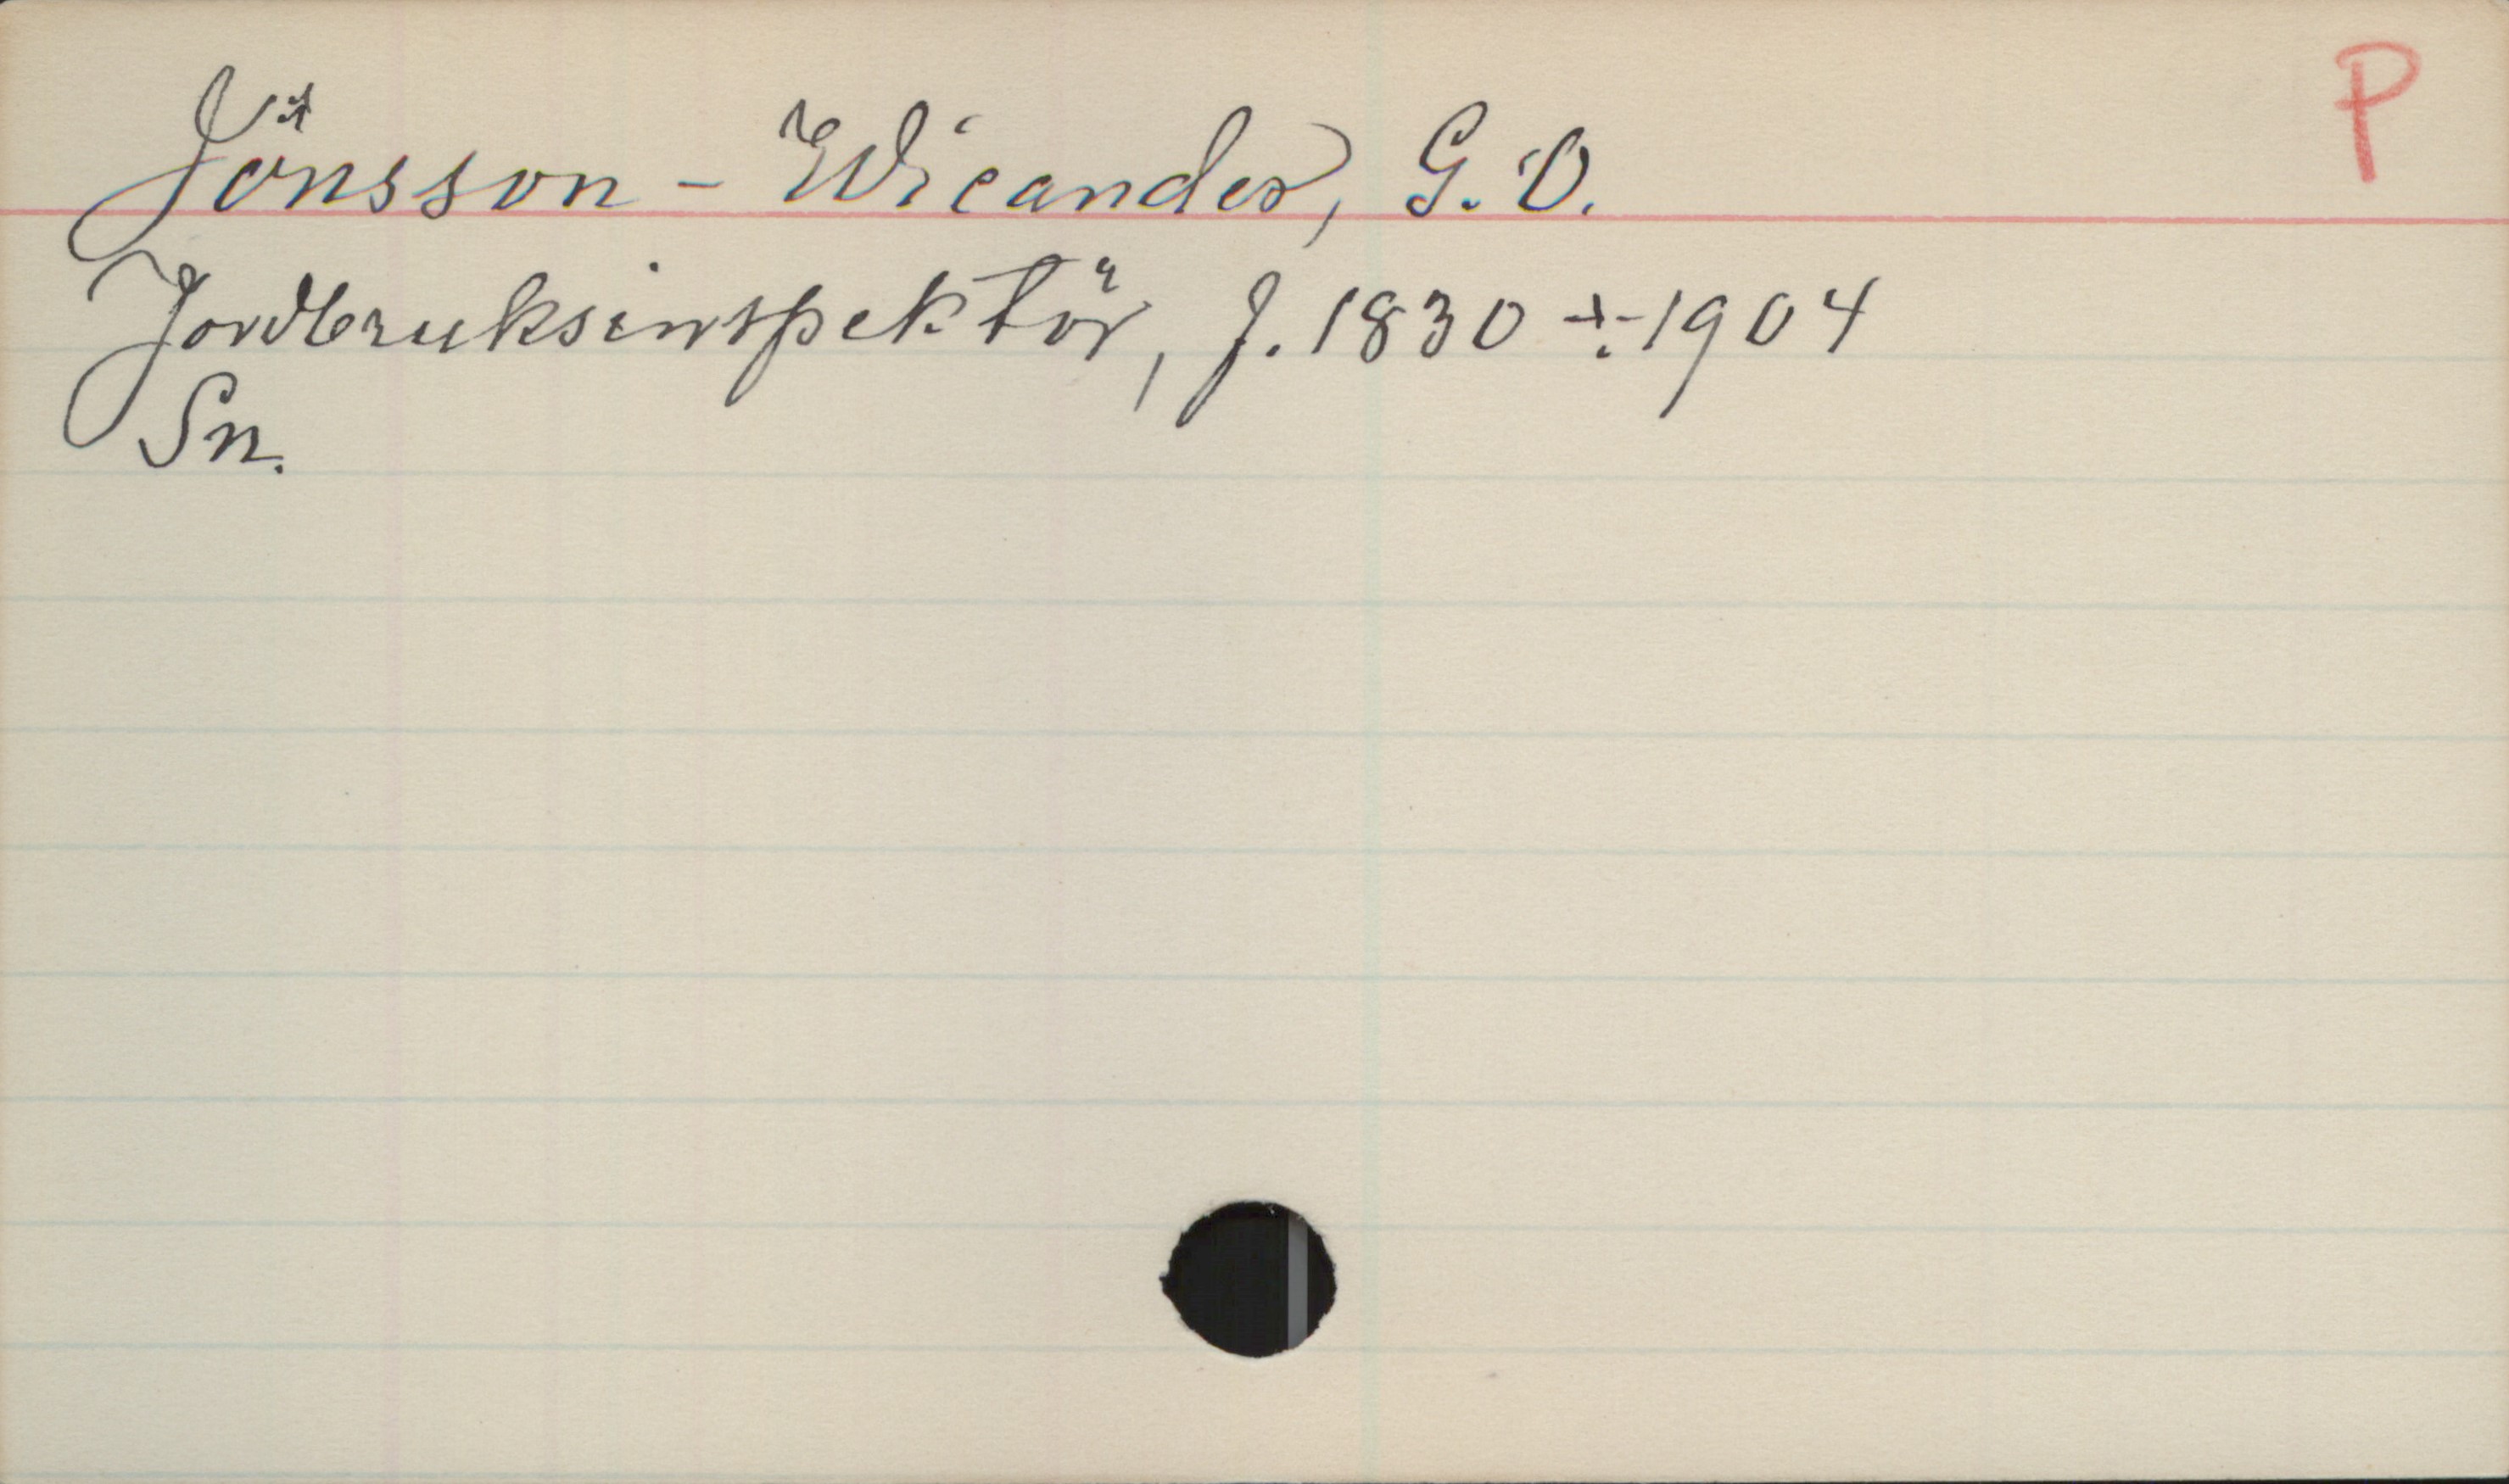 P
Jönsson - Wicander, G. O.
Jordbruksinspektör, f. 1830 ÷ 1904
Sn.